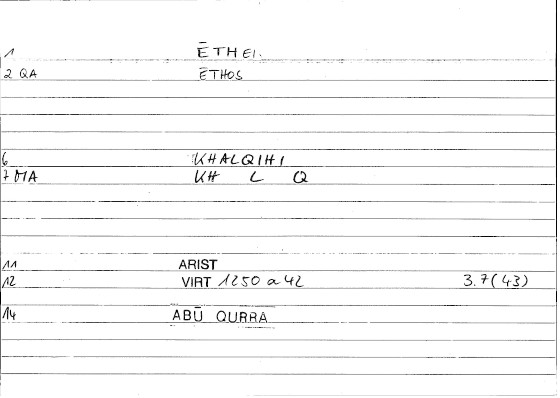 1 ĒTHEI.
2 QA ĒTHOS
6 KHALQIHI
7 MA KH L Q
11 ARIST
12 VIRT 1250 a 42 3.7(43)
14 ABŪ QURRA